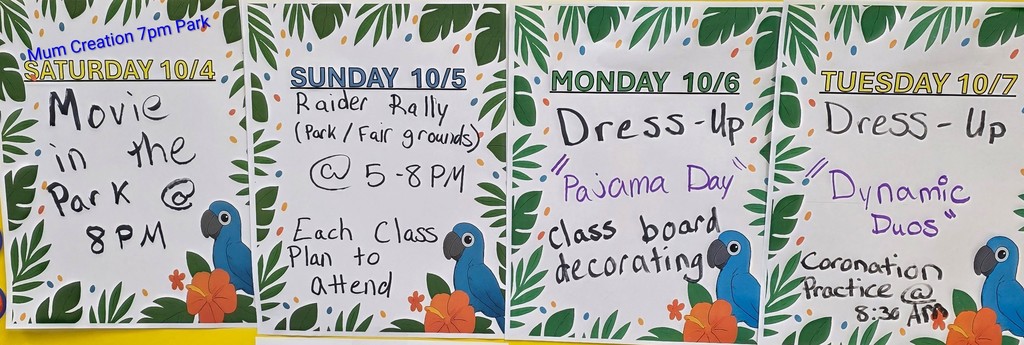 Mum Creation 7pm Park
SATURDAY 10/4
Movie
in the
Park @
8PM
SUNDAY 10/5
Raider Rally
(Park / Fair grounds)
@ 5-8PM
Each Class
Plan to
attend
MONDAY 10/6
Dress-Up
"Pajama Day"
class board
decorating
TUESDAY 10/7
Dress-Up
"Dynamic
Duos"
Coronation
Practice @
8:30 AM